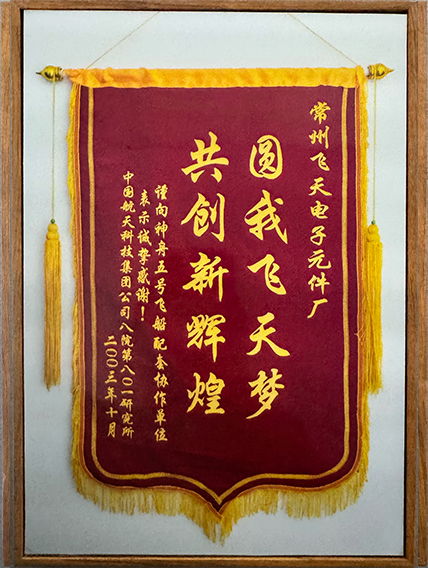 常州飞天电子元件厂
圆我飞天梦
共创新辉煌
谨向神舟五号飞船配套协作单位
表示诚挚感谢！
中国航天科技集团公司八院第八〇一研究所
二〇〇三年十月